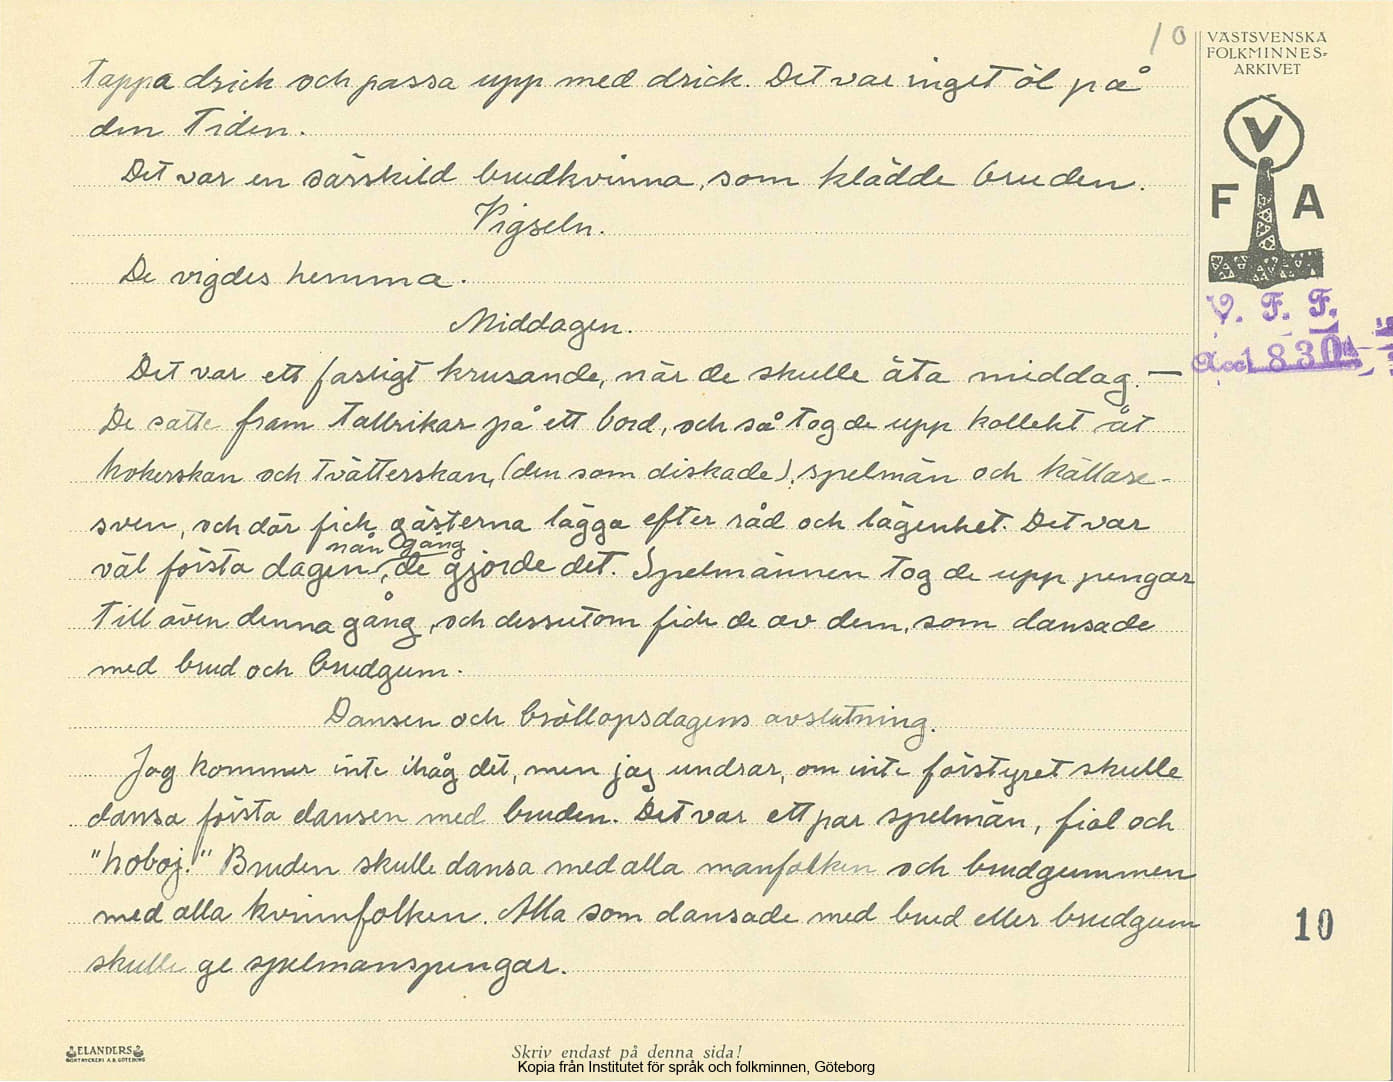 10
VÄSTSVENSKA
FOLKMINNES-
ARKIVET
V
F A
V. F. F.
Acc 1830
tappa drick och passa upp med drick. Det var inget öl på
den tiden.
Det var en särskild brudkvinna, som klädde bruden.
Vigseln.
De vigdes hemma.
Middagen.
Det var ett fasligt krusande, när de skulle äta middag. —
De satte fram tallrikar på ett bord, och så tog de upp kollekt åt
kokerskan och tvätterskan, (den som diskade), spelmän och källare-
sven, och där fick gästerna lägga efter råd och lägenhet. Det var
nån gång
väl första dagen, de gjorde det. Spelmännen tog de upp pengar
till även denna gång, och dessutom fick de av dem, som dansade
med brud och brudgum.
Dansen och bröllopsdagens avslutning.
Jag kommer inte ihåg det, men jag undrar, om inte förstyret skulle
dansa första dansen med bruden. Det var ett par spelmän, fiol och
"hoboj." Bruden skulle dansa med alla manfolken och brudgummen
med alla kvinnfolken. Alla som dansade med brud eller brudgum
skulle ge spelmanspengar.
10
ELANDERS
BOKTRYCKERI A.B. GÖTEBORG
Skriv endast på denna sida!
Kopia från Institutet för språk och folkminnen, Göteborg